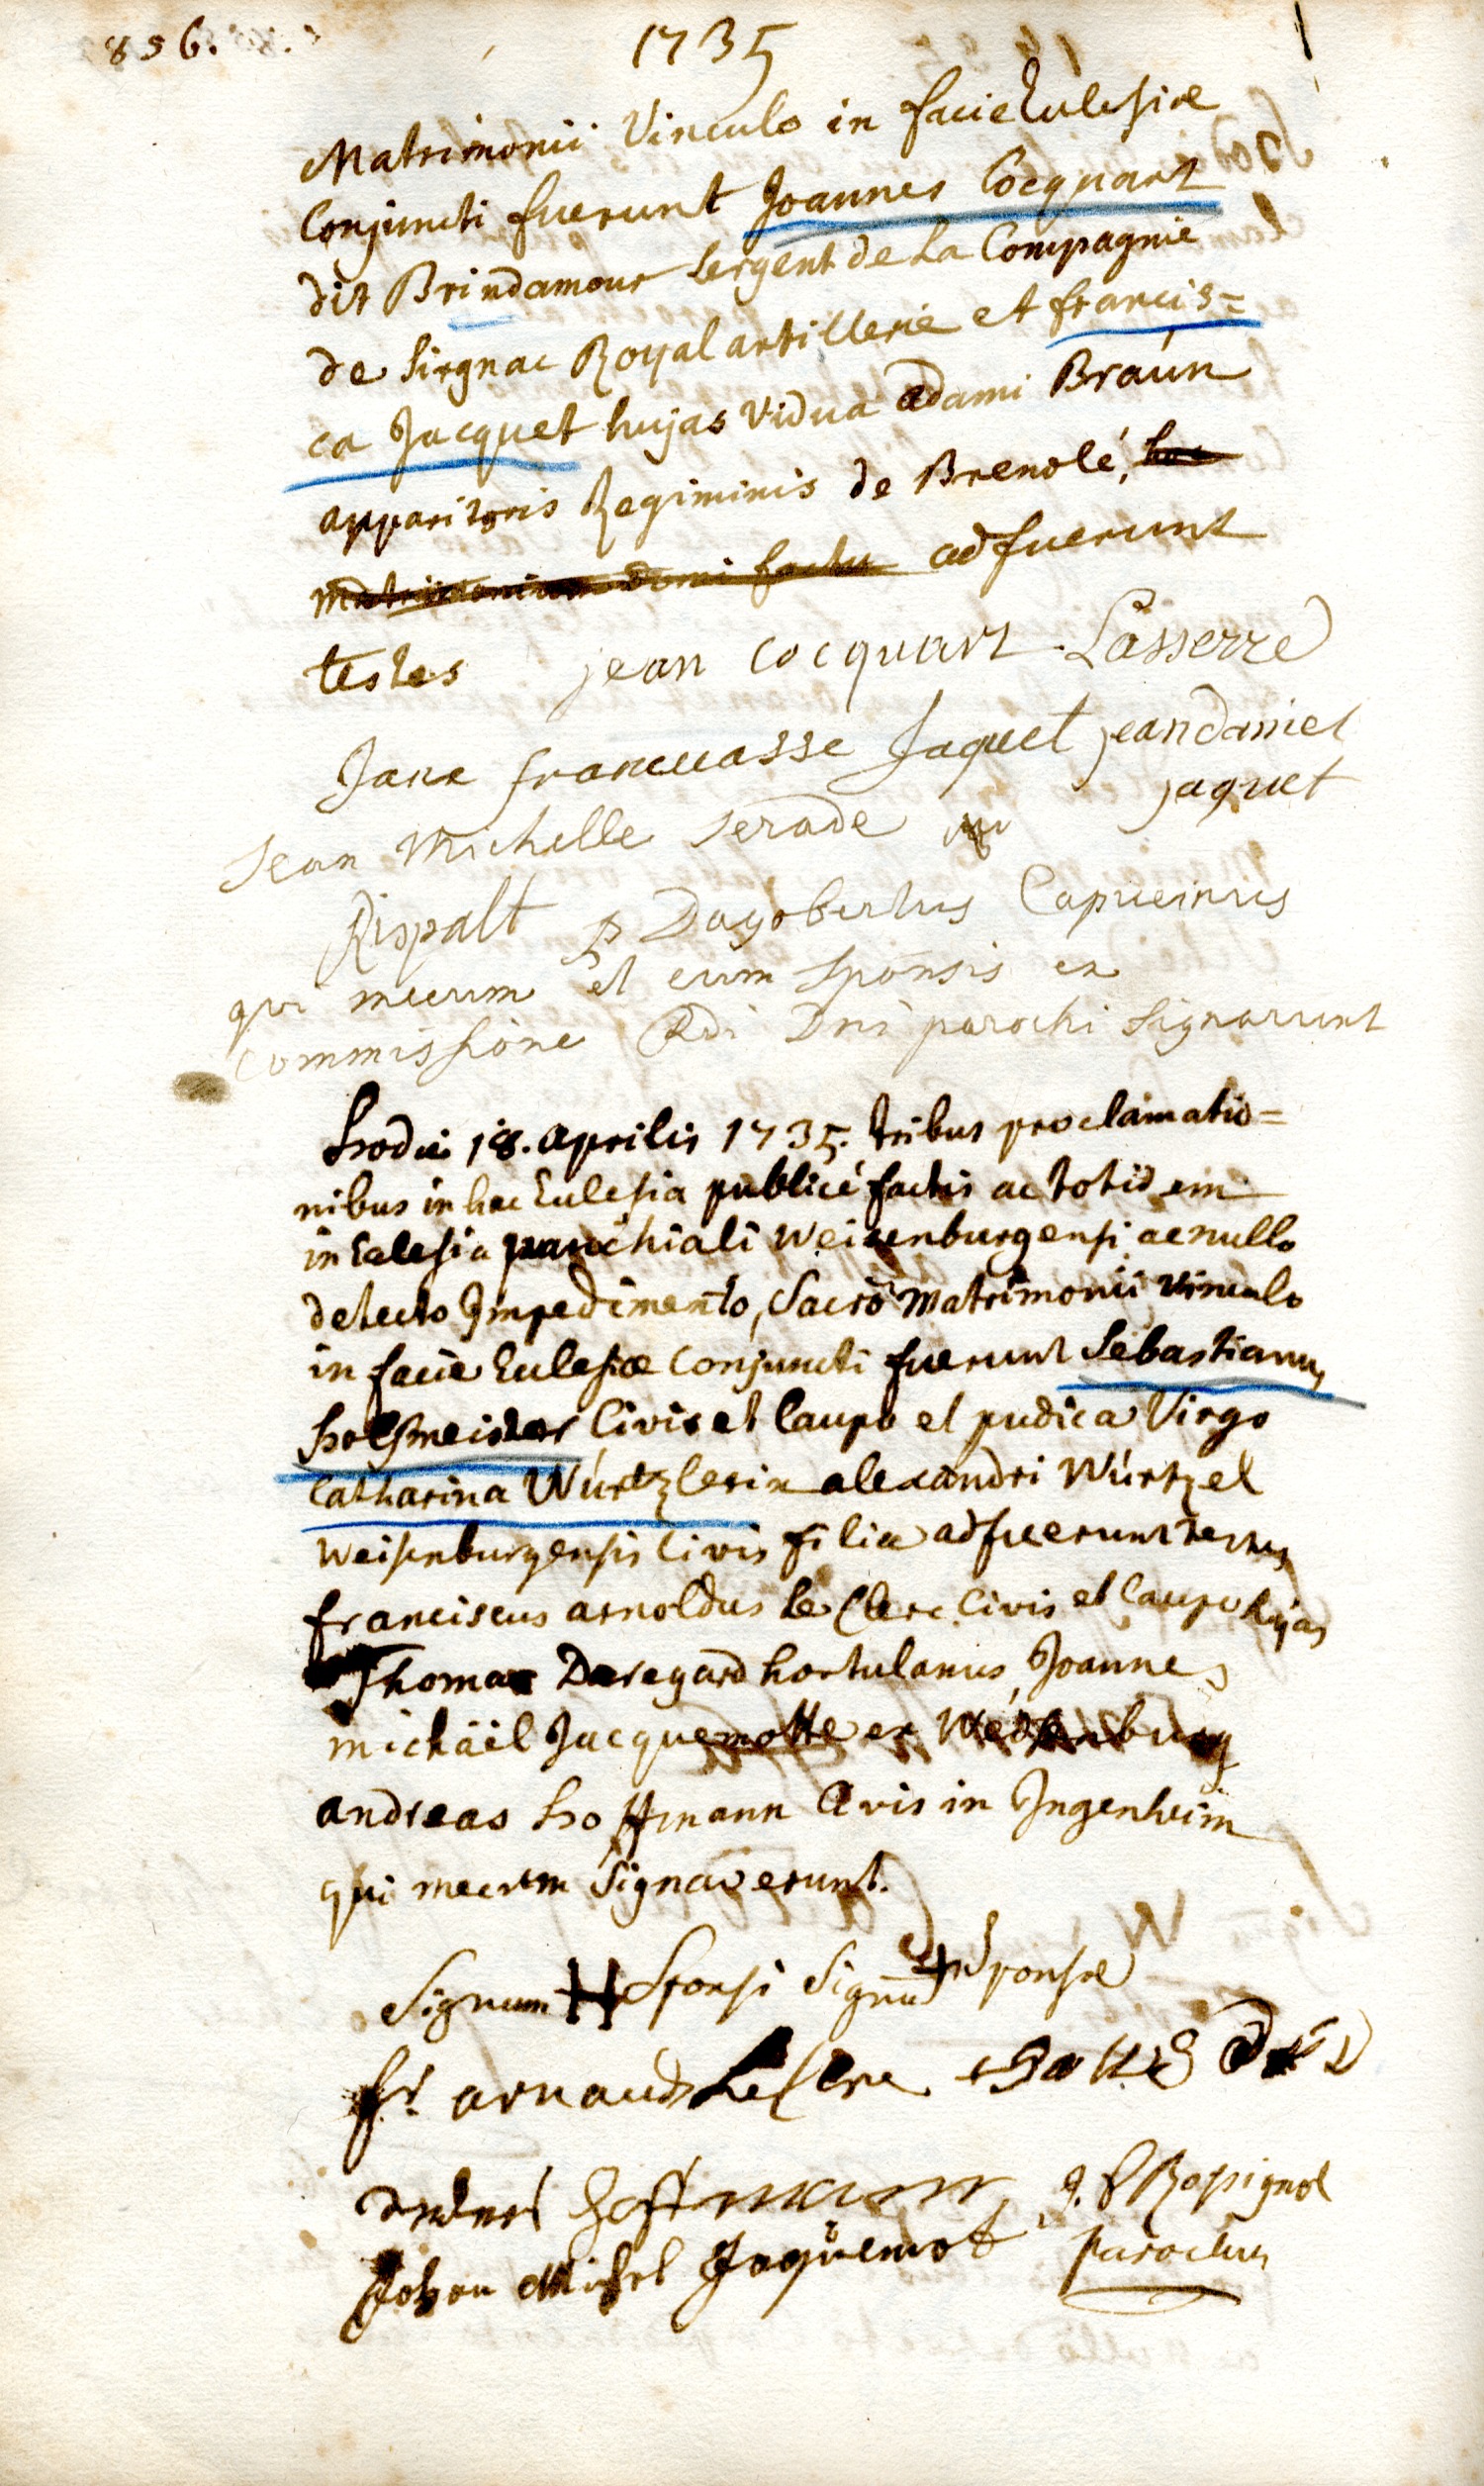 856.
1735
Matrimonii Vinculo in facie Eulesiæ
Conjuncti fuerunt Joannes Cocquart
dit Brindamour Sergent de La Compagnie
de Sirgnac Royal artillerie et francis=
ca Jacquet hujas Vidua adami Braún
apparitoris Regiminis de Brenolé, hoc
matrimonium domi factu adfuerunt
testes jean cocquart Lasserre
Jane francuasse Jaquet jean daniel
jaquet
Jean Michelle serade
Rispalt p Dagobertus Capucinus
qui mecum et cum sponsis ex
commissione Rdi Dni parochi signarunt
hodie 18. aprilis 1735. tribus proclamatio=
nibus in hac Eulesia publicé factis ac totidem
in Ealesia parochiali Weisenburgensi ac nullo
detecto Impedimento, Sacro Matrimonii Vinculo
in facie Eulesiæ Conjuncti fuerunt Sebastianus
hoffmeister Civis et Caupo et pudica Virgo
Catharina Wúrtzlerin alexandri Wúrtzel
weisenburgensis Civis filia adfuerunt testes
franciscus arnoldus Le Clerc Civis et Caupo hujas
Thomas Daregard hortulanus, Joannes
michäel Jacquemotte ex Weisenburg
andreas hoffmann Civis in Ingenheim
qui mecum Signaverunt.
Signum H Sponsi Signũ + Sponsæ
fr. arnauds Le Clere
andres hoffmann J. P Rapignol
Johan Michel Jaquemot parochus